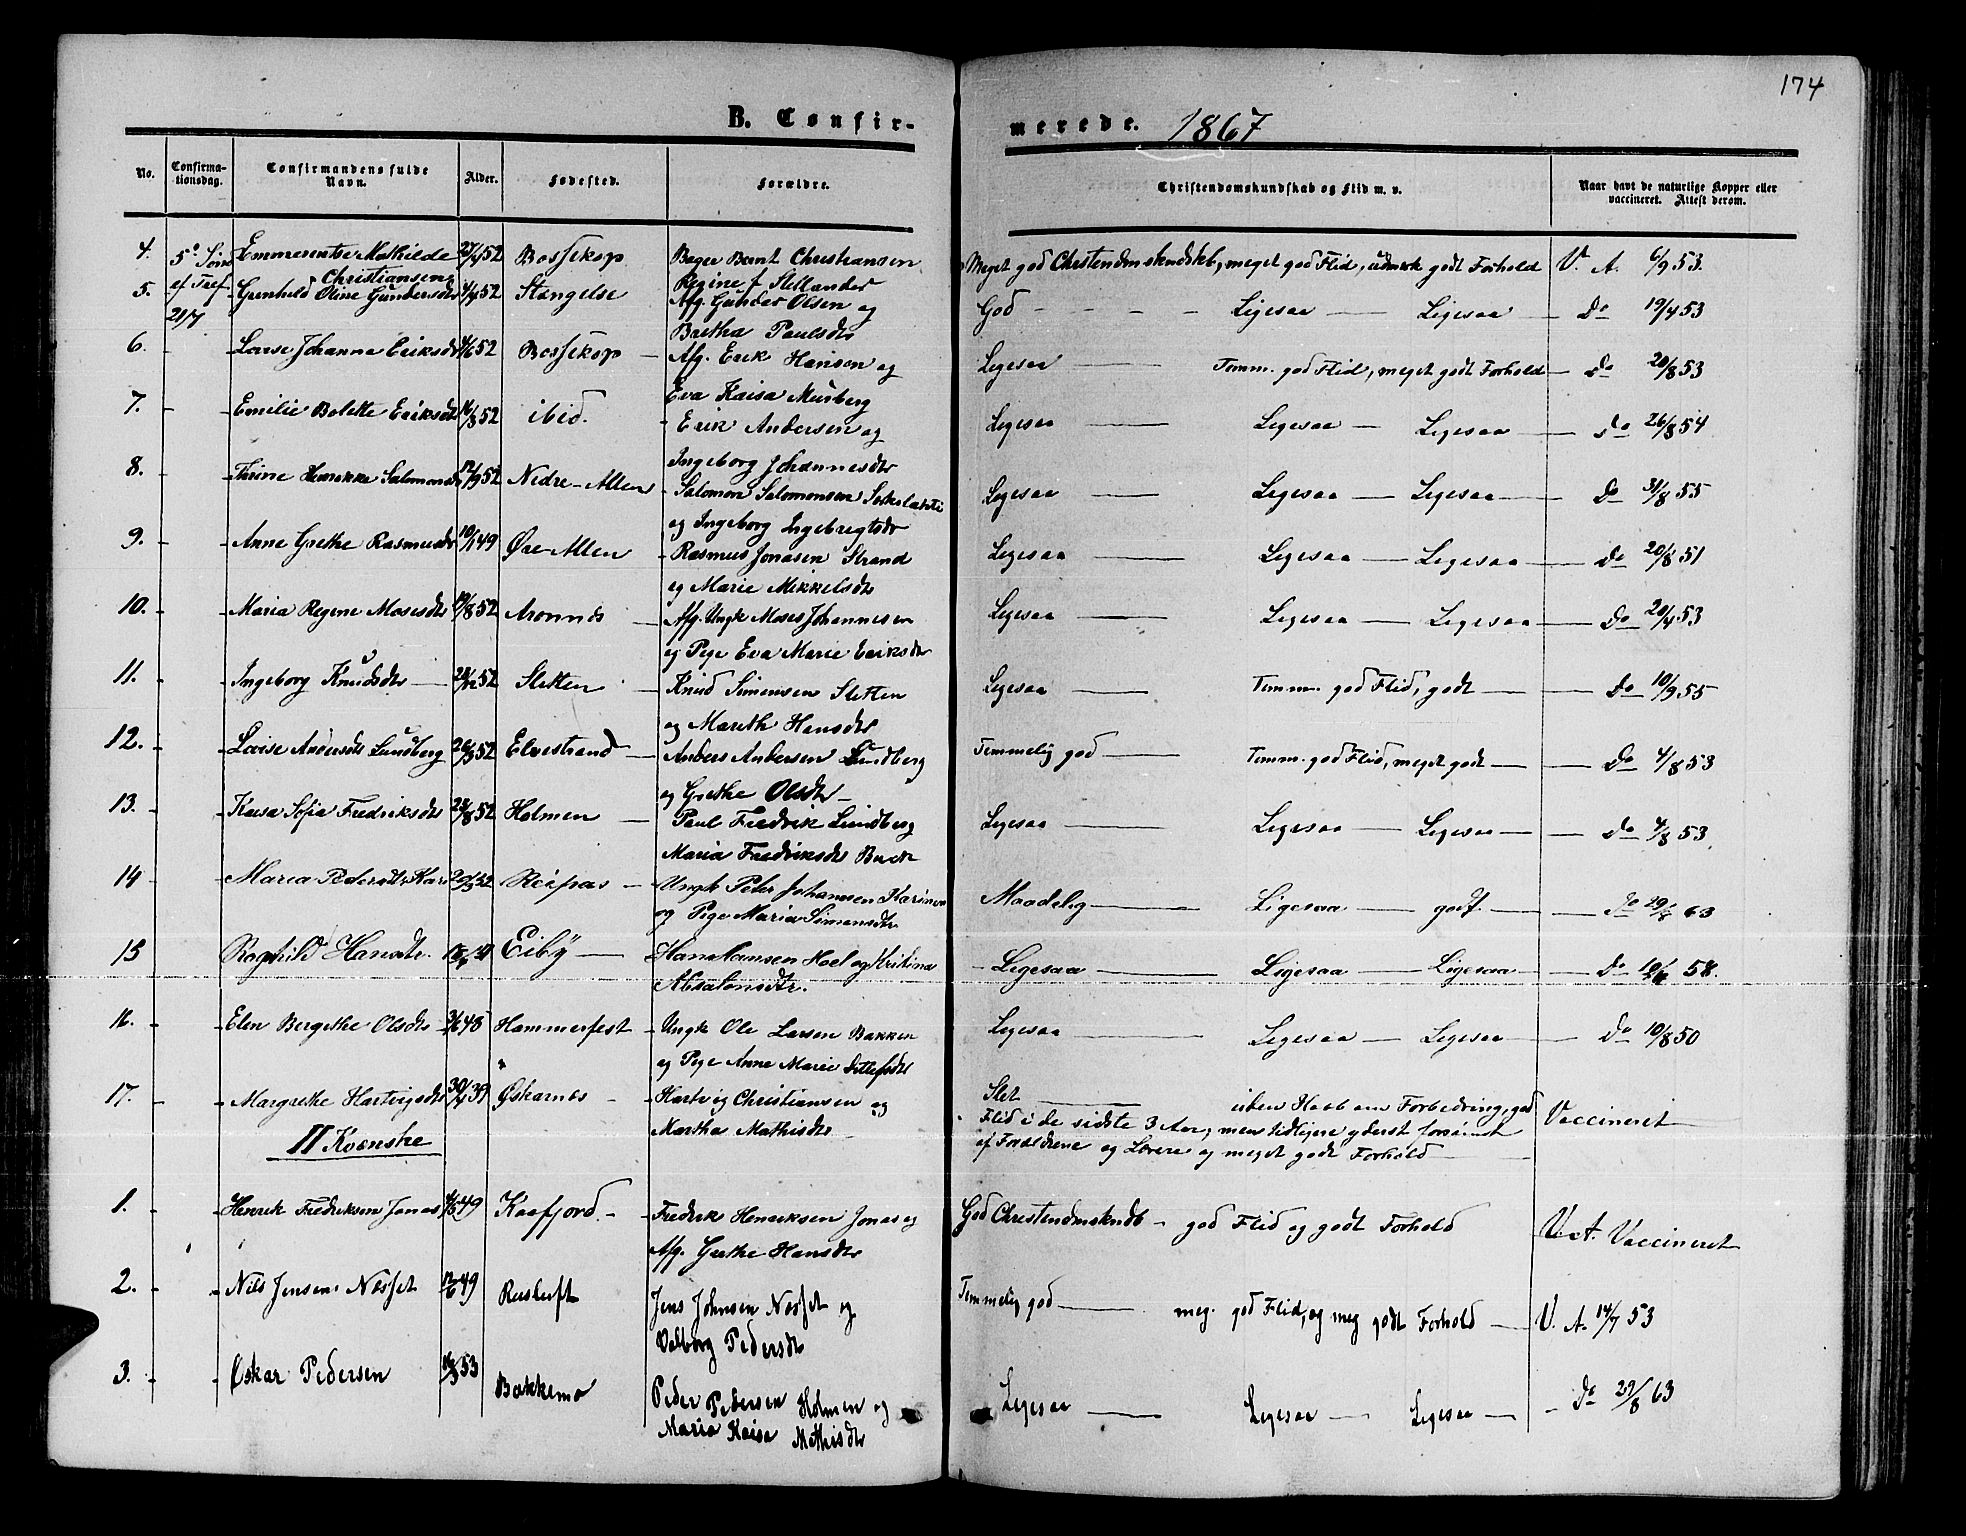 174
B. Confirmerede. 1867
No. Confirmationsdag. Confirmandens fulde Navn. Alder. Fødested. Forældre. Christendomskundskab og Flid m. v. Naar havt de naturlige Kopper eller vaccineret. Attest derom.
4. 5te Sønd Emmerentse Mathilde 27/4 52 Bossekop Bager Bernt Christiansen Meget god Christendmskndskb, meget god Flid, udmrk godt Forhold V. A. 6/9 53.
ef Tref. Christiansen Regine f Stellander
5. Grenhild Oline Gundersdtr 4/4 52 Stengelse Afg. Gunder Olsen og God Ligesaa Ligesaa Do 19/4 53
21/7 Bretha Paulsdtr
6. Lovise Johanna Eriksdtr 4/6 52 Bossekop Afg. Erik Hansen og Ligesaa Temm. god Flid, meget godt Forhold Do 20/8 53
Eva Kaisa Musberg
7. Emilie Bolette Eriksdtr 16/8 52 ibid. Erik Andersen og Ligesaa Ligesaa Ligesaa Do 26/8 54
Ingeborg Johannesdtr
8. Thrine Henrikke Salomonsd 12/9 52 Nedre-Alten Salomon Salomonsen Ligesaa Ligesaa Ligesaa Do 31/8 55
og Ingeborg Ingebregtsdr
9. Anne Grethe Rasmusdr 10/1 49 Øvre-Alten Rasmus Jonasen Strand Ligesaa Ligesaa Ligesaa Do 20/8 51
og Marie Mikkelsdtr
10. Maria Regine Mosesdtr 19/8 52 Aronnes Afg. Ungk Moses Johannesen Ligesaa Ligesaa Ligesaa Do 20/4 53
og Pige Eva Marie Eriksdr
11. Ingeborg Knudsdtr 28/12 52 Sletten Knud Simensen Sletten Ligesaa Temm. god Flid, godt Do 10/9 55
og Mareth Hansdtr
12. Lovise Andersdtr Lundberg 26/3 52 Elvestrand Anders Andersen Lundberg Temmelig god Temm. god Flid, meget godt Do 4/8 53
og Grethe Olsdtr
13. Kaisa Sofia Fredriksdtr 23/8 52 Holmen Paul Fredrik Lundberg Ligesaa Ligesaa Ligesaa Do 4/8 53
Maria Fredriksdtr Buck
14 Maria Pedersdtr Kari 20/3 52 Reipas Ungk Peter Johansen Maadelig Ligesaa godt Do 29/8 63
og Pige Maria Simensdtr
15 Ragnhild Hansdtr. Eiby Hans Hansen Hoel og Kristina Ligesaa Ligesaa Ligesaa Do 58.
Absalonsdtr.
16. Elen Bergethe Olsdtr 3/6 48 Hammerfest Ungk Ole Larsen Bakken Ligesaa Ligesaa Ligesaa Do 10/8 50
og Pige Anne Marie Ditlefsdtr
17. Margrethe Hartvigsdtr 30/4 39 Øskarnes Hartvig Christiansen og Slet uden Haab om Forbedring, god Vaccineret
Martha Mathisdtr Flid i de sidste 3 Aar, men tidligere yderst forsømt
af Forældrene og Lærere og meget godt Forhold
II Kvenske
1. Henrik Fredriksen Jonas 4/5 49 Kaafjord. Fredrik Henriksen Jonas og God Christendmskndb god Flid og godt Forhold V. A. Vaccineret
Afg. Grethe Hansdtr
2. Nils Jensen Næsset 12/6 49 Rusluft Jens Johnsen Næsset og Temmelig god meg. god Flid, og meg godt Forhold V. A. 14/7 53
Valborg Pedersdtr
3. Oskar Pedersen 16/3 53 Bakkemo Peder Pedersen Holmen og Ligesaa Ligesaa Ligesaa Do 29/8 63
Maria Kaisa Mathisdtr